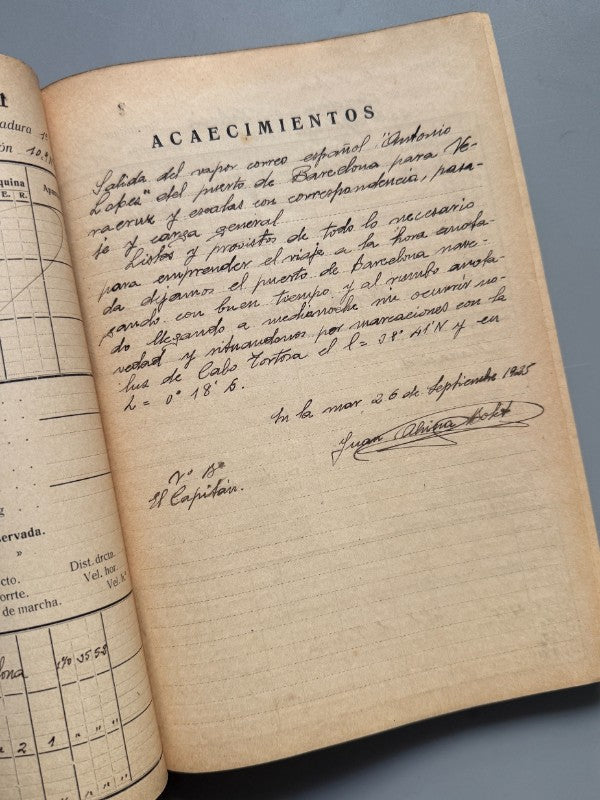 adura 1
ón 10.
quina
E. R.
Agu
g
servada.
»
cto.
Dist. drcta.
orrte.
Vel. hor.
de marcha.
Vel. K
ona
170 35.58
2 1 " " "
" " "
ACAECIMIENTOS
Salida del vapor correo español "Antonio
Lopez" del puerto de Barcelona para Ve-
racruz y escalas con correspondencia, pasa-
je y carga general
Listos y provistos de todo lo necesario
para emprender el viaje a la hora anota-
da dejamos el puerto de Barcelona nave-
gando con buen tiempo y al rumbo anota-
do llegando a medianoche sin ocurrir no-
vedad y situandonos por marcaciones con la
luz de Cabo Tortosa el l = 39° 41' N y en
L = 0° 18' E.
En la mar 26 de Septiembre 1925
Juan
Vº Bº
El Capitán.